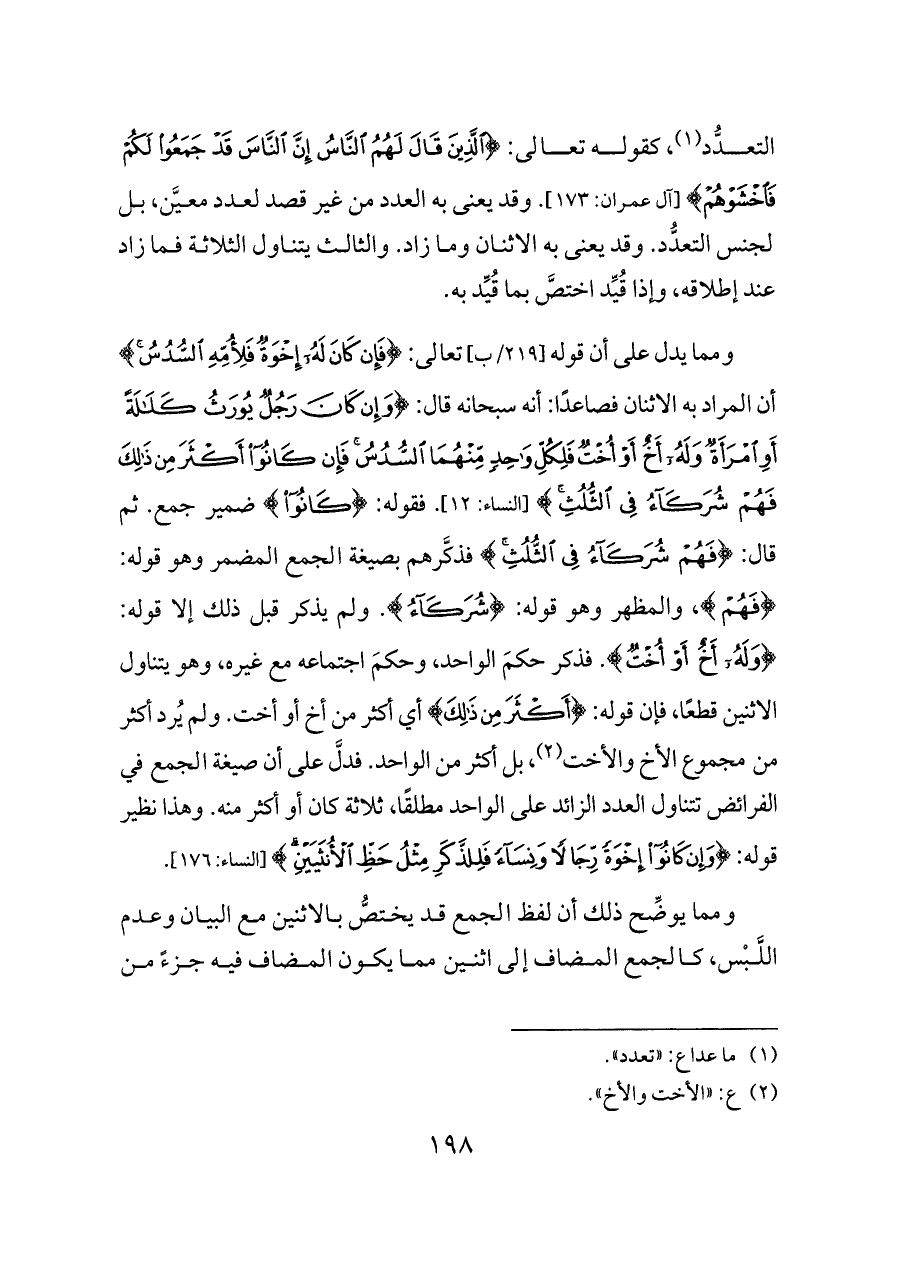 التعـــدُّد(١)، كقولـــه تعـــالى: ﴿ٱلَّذِينَ قَالَ لَهُمُ ٱلنَّاسُ إِنَّ ٱلنَّاسَ قَدْ جَمَعُوا۟ لَكُمْ
فَٱخْشَوْهُمْ﴾ [آل عمران: ١٧٣]. وقد يعنى به العدد من غير قصد لعدد معيَّن، بل
لجنس التعدُّد. وقد يعنى به الاثنان وما زاد. والثالث يتناول الثلاثة فما زاد
عند إطلاقه، وإذا قُيِّد اختصَّ بما قُيِّد به.
ومما يدل على أن قوله [٢١٩/ب] تعالى: ﴿فَإِن كَانَ لَهُۥٓ إِخْوَةٌ فَلِأُمِّهِ ٱلسُّدُسُ ۚ﴾
أن المراد به الاثنان فصاعدًا: أنه سبحانه قال: ﴿وَإِن كَانَ رَجُلٌ يُورَثُ كَلَـٰلَةً
أَوِ ٱمْرَأَةٌ وَلَهُۥٓ أَخٌ أَوْ أُخْتٌ فَلِكُلِّ وَٰحِدٍ مِّنْهُمَا ٱلسُّدُسُ ۚ فَإِن كَانُوٓا۟ أَكْثَرَ مِن ذَٰلِكَ
فَهُمْ شُرَكَآءُ فِى ٱلثُّلُثِ ۚ﴾ [النساء: ١٢]. فقوله: ﴿كَانُوٓا۟﴾ ضمير جمع. ثم
قال: ﴿فَهُمْ شُرَكَآءُ فِى ٱلثُّلُثِ ۚ﴾ فذكَّرهم بصيغة الجمع المضمر وهو قوله:
﴿فَهُمْ﴾، والمظهر وهو قوله: ﴿شُرَكَآءُ﴾. ولم يذكر قبل ذلك إلا قوله:
﴿وَلَهُۥٓ أَخٌ أَوْ أُخْتٌ﴾. فذكر حكمَ الواحد، وحكمَ اجتماعه مع غيره، وهو يتناول
الاثنين قطعًا، فإن قوله: ﴿أَكْثَرَ مِن ذَٰلِكَ﴾ أي أكثر من أخ أو أخت. ولم يُرد أكثر
من مجموع الأخ والأخت(٢)، بل أكثر من الواحد. فدلَّ على أن صيغة الجمع في
الفرائض تتناول العدد الزائد على الواحد مطلقًا، ثلاثة كان أو أكثر منه. وهذا نظير
قوله: ﴿وَإِن كَانُوٓا۟ إِخْوَةً رِّجَالًا وَنِسَآءً فَلِلذَّكَرِ مِثْلُ حَظِّ ٱلْأُنثَيَيْنِ ۗ﴾ [النساء: ١٧٦].
ومما يوضِّح ذلك أن لفظ الجمع قد يختصُّ بالاثنين مع البيان وعدم
اللَّبْس، كـالجمع المـضاف إلى اثنـين ممـا يكـون المـضاف فيـه جـزءً مـن
(١) ما عدا ع: «تعدد».
(٢) ع: «الأخت والأخ».
١٩٨